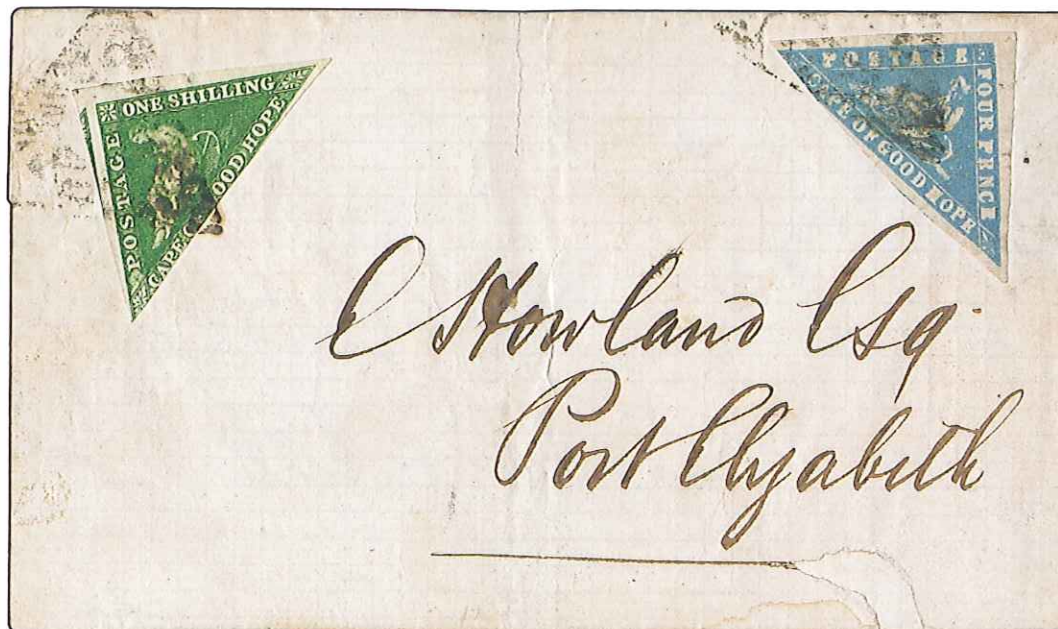 ONE SHILLING
POSTAGE
CAPE OOD HOPE
POSTAGE
FOUR PENCE
CAPE OF GOOD HOPE
C Howland Esq
Port Elyzabeth